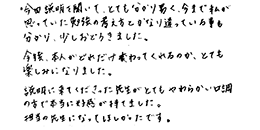 今回説明を聞いて、とても分かり易く、今まで私が
思っていた勉強の考え方とかなり違っている事も
分かり、少しおどろきました。
今後、本人がどれだけ変わってくれるのか、とても
楽しみになりました。
説明に来てくださった先生がとてもやわらかい口調
の方で本当に好感が持てました。
担当の先生になってほしかったです。